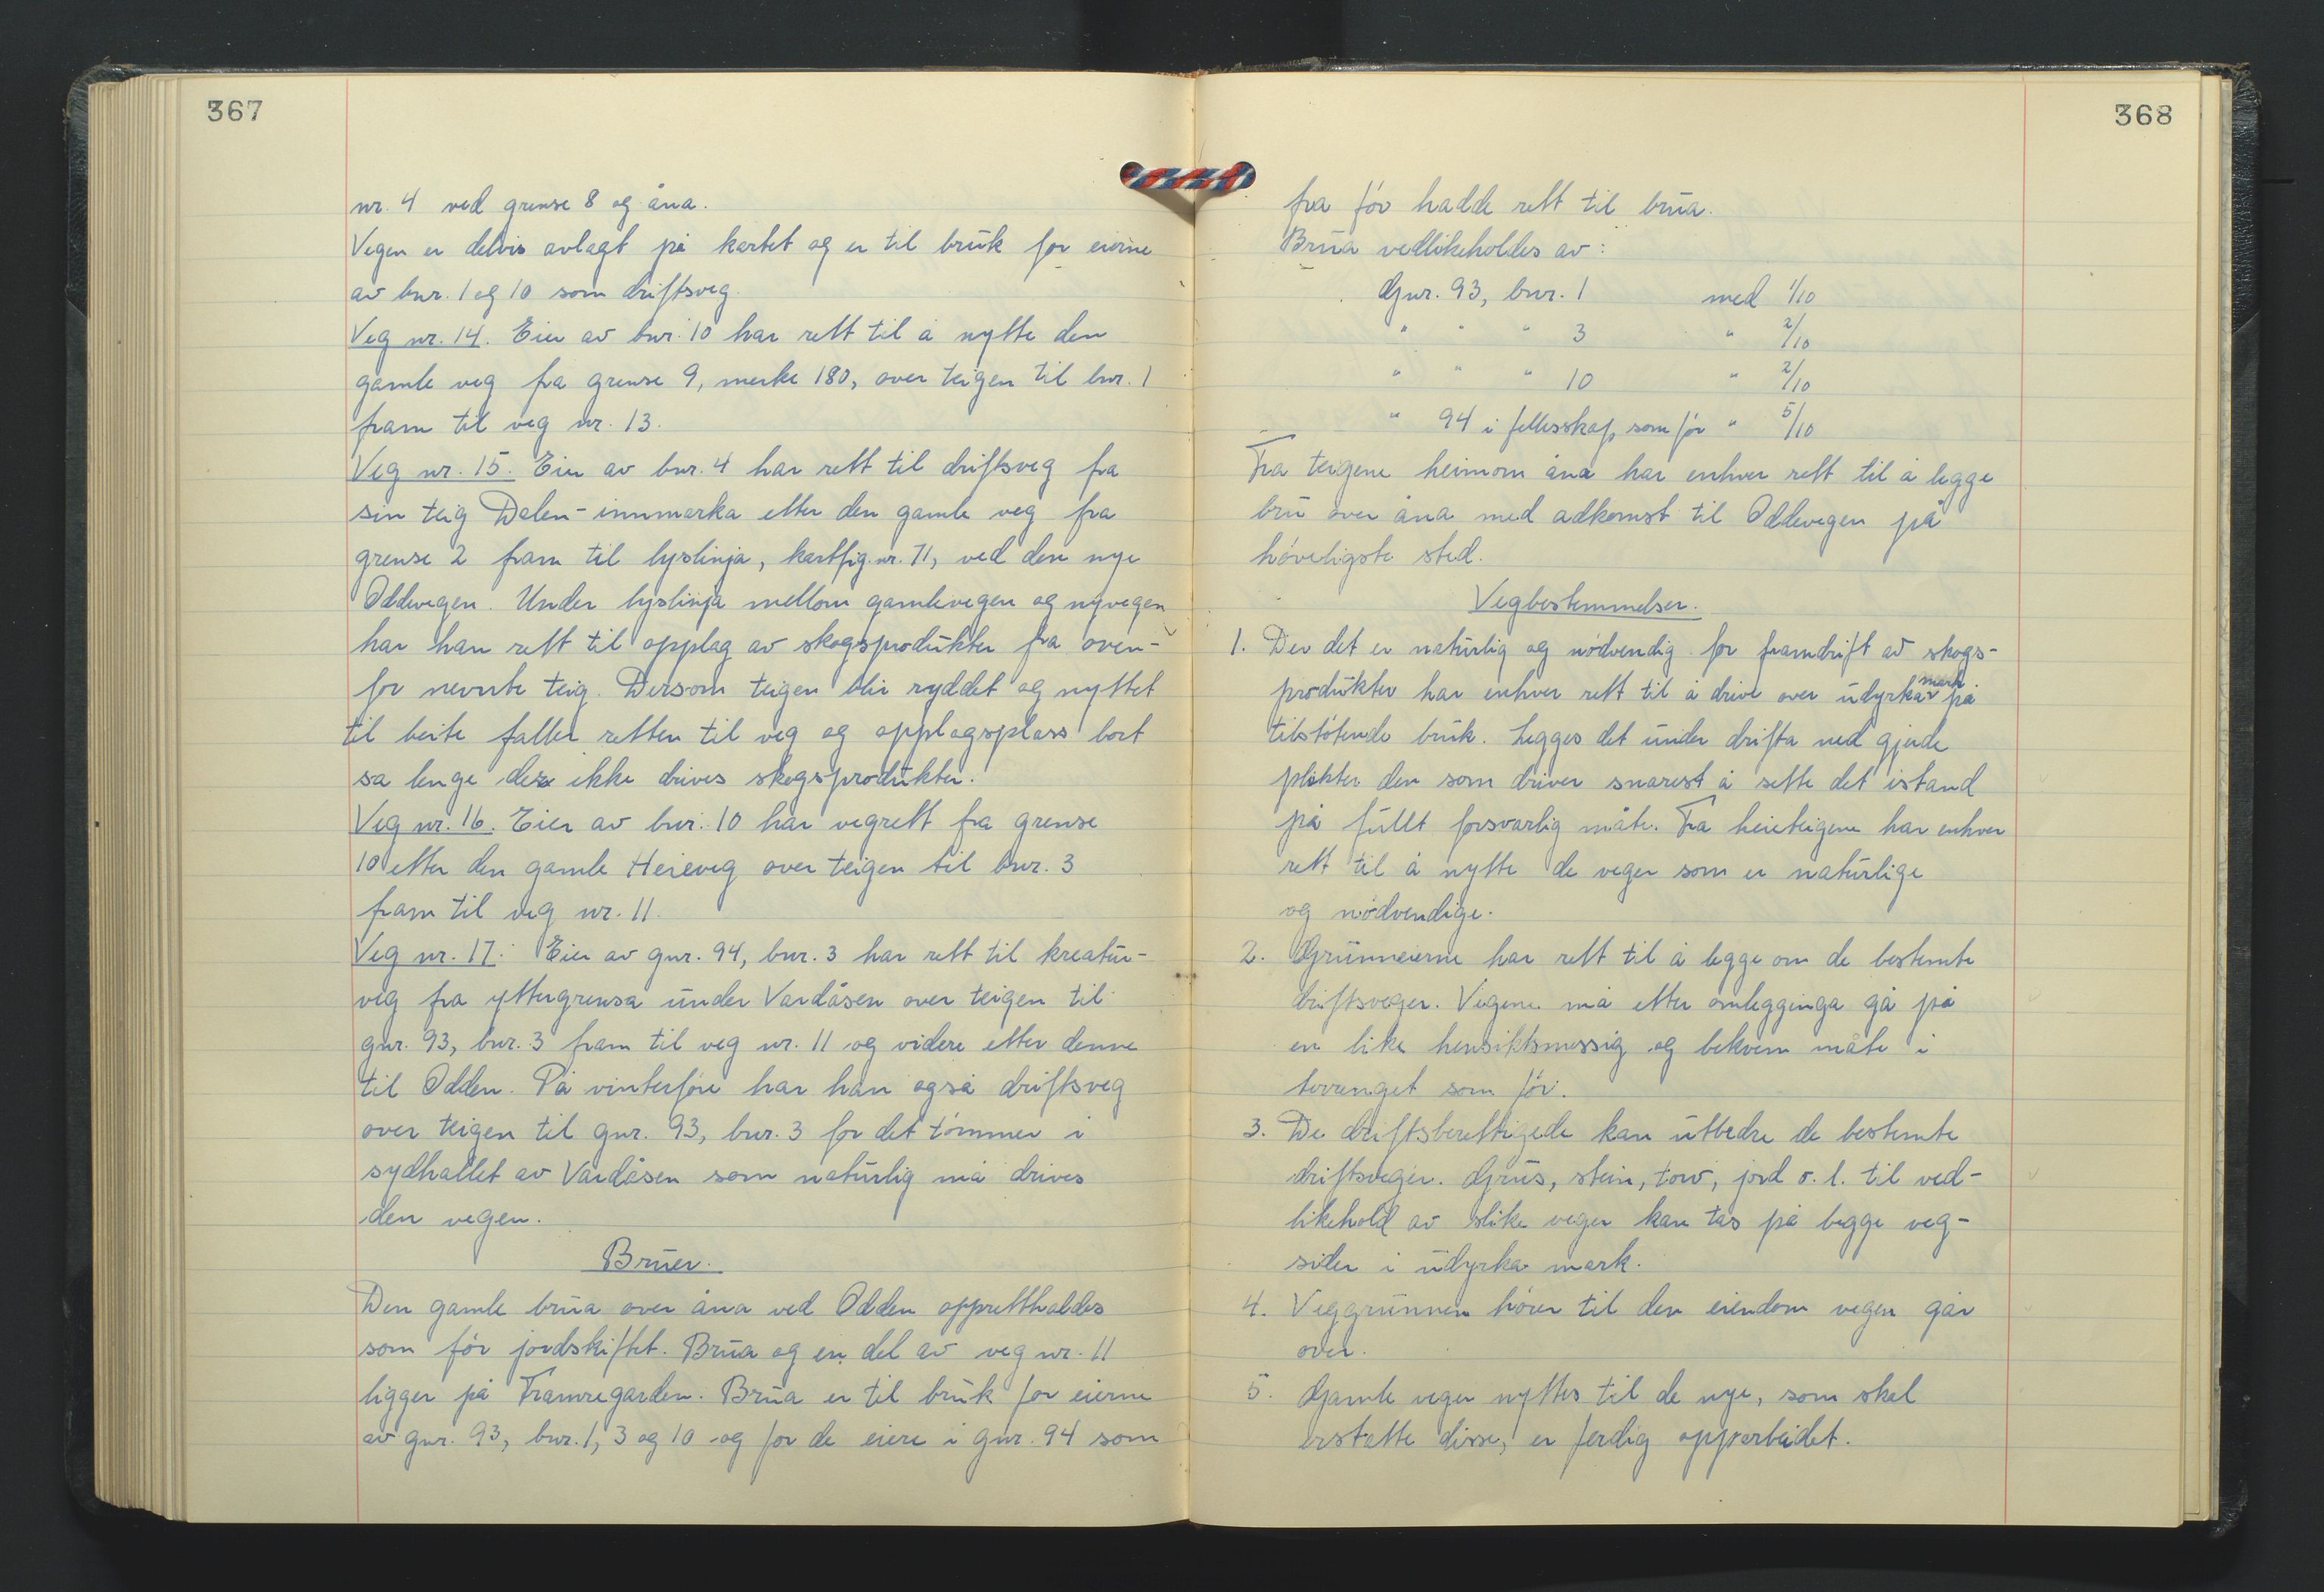 367
nr. 4 ved grense 8 og åna.
Vegen er delvis avlagt på kartet og er til bruk for eierne
av bnr. 1 og 10 som driftsveg.
Veg nr. 14. Eier av bnr. 10 har rett til å nytte den
gamle veg fra grense 9, merke 180, over teigen til bnr. 1
fram til veg nr. 13.
Veg nr. 15. Eier av bnr. 4 har rett til driftsveg fra
sin teig Dalen-innmarka etter den gamle veg fra
grense 2 fram til lyslinja, kartfig. nr. 71, ved den nye
Oddevegen. Under lyslinja mellom gamlevegen og nyvegen
har han rett til opplag av skogsprodukter fra oven-
for nevnte teig. Dersom teigen blir ryddet og nyttet
til beite faller retten til veg og opplagsplass bort
sa lenge der ikke drives skogsprodukter.
Veg nr. 16. Eier av bnr. 10 har vegrett fra grense
10 etter den gamle Heieveg over teigen til bnr. 3
fram til veg nr. 11.
Veg nr. 17. Eier av gnr. 94, bnr. 3 har rett til kreatur-
veg fra yttergrensa under Vardåsen over teigen til
gnr. 93, bnr. 3 fram til veg nr. 11 og videre etter denne
til Odden. På vinterføre har han også driftsveg
over teigen til gnr. 93, bnr. 3 for det tømmer i
sydhallet av Vardåsen som naturlig må drives
den vegen.
Bruer.
Den gamle brua over åna ved Odden opprettholdes
som før jordskiftet. Brua og en del av veg nr. 11
ligger på Framregarden. Brua er til bruk for eierne
av gnr. 93, bnr. 1, 3 og 10 og for de eiere i gnr. 94 som
368
fra før hadde rett til brua.
Brua vedlikeholdes av:
Gnr. 93, bnr. 1 med 1/10
" " " 3 " 2/10
" " " 10 " 2/10
" 94 i fellesskap som før " 5/10
Fra teigene heimom åna har enhver rett til å legge
bru over åna med adkomst til Oddevegen på
høveligste sted.
Vegbestemmelser.
1. Der det er naturlig og nødvendig for framdrift av skogs-
produkter har enhver rett til å drive over udyrka mark på
tilstøtende bruk. Legges det under drifta ned gjerde
plikter den som driver snarest å sette det istand
på fullt forsvarlig måte. Fra heieteigene har enhver
rett til å nytte de veger som er naturlige
og nødvendige.
2. Grunneierne har rett til å legge om de bestemte
driftsveger. Vegene må etter omlegginga gå på
en like hensiktsmessig og bekvem måte i
terrenget som før.
3. De driftsberettigede kan utbedre de bestemte
driftsveger. Grus, stein, torv, jord o. l. til ved-
likehold av slike veger kan tas på begge veg-
sider i udyrka mark.
4. Veggrunnen hører til den eiendom vegen går
over.
5. Gamle veger nyttes til de nye, som skal
erstatte disse, er ferdig opparbeidet.